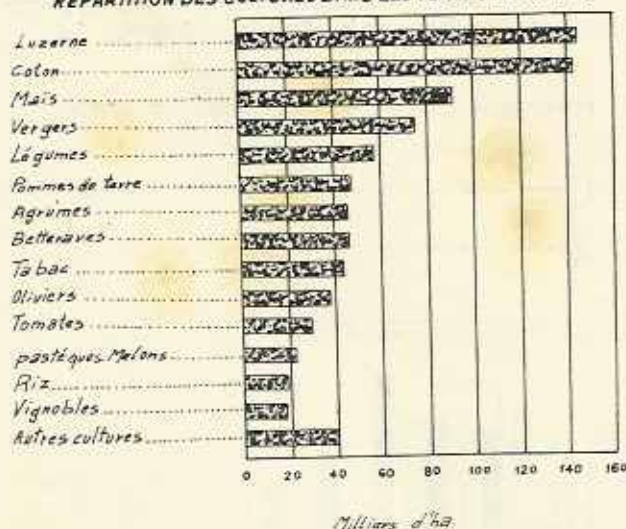 REPARTITION DES CULTURES DANS LES
Luzerne
Coton
Maïs
Vergers
Légumes
Pommes de terre
Agrumes
Betteraves
Tabac
Oliviers
Tomates
pastèques Melons
Riz
Vignobles
Autres cultures
0 20 40 60 80 100 120 140 160
Milliers d'ha